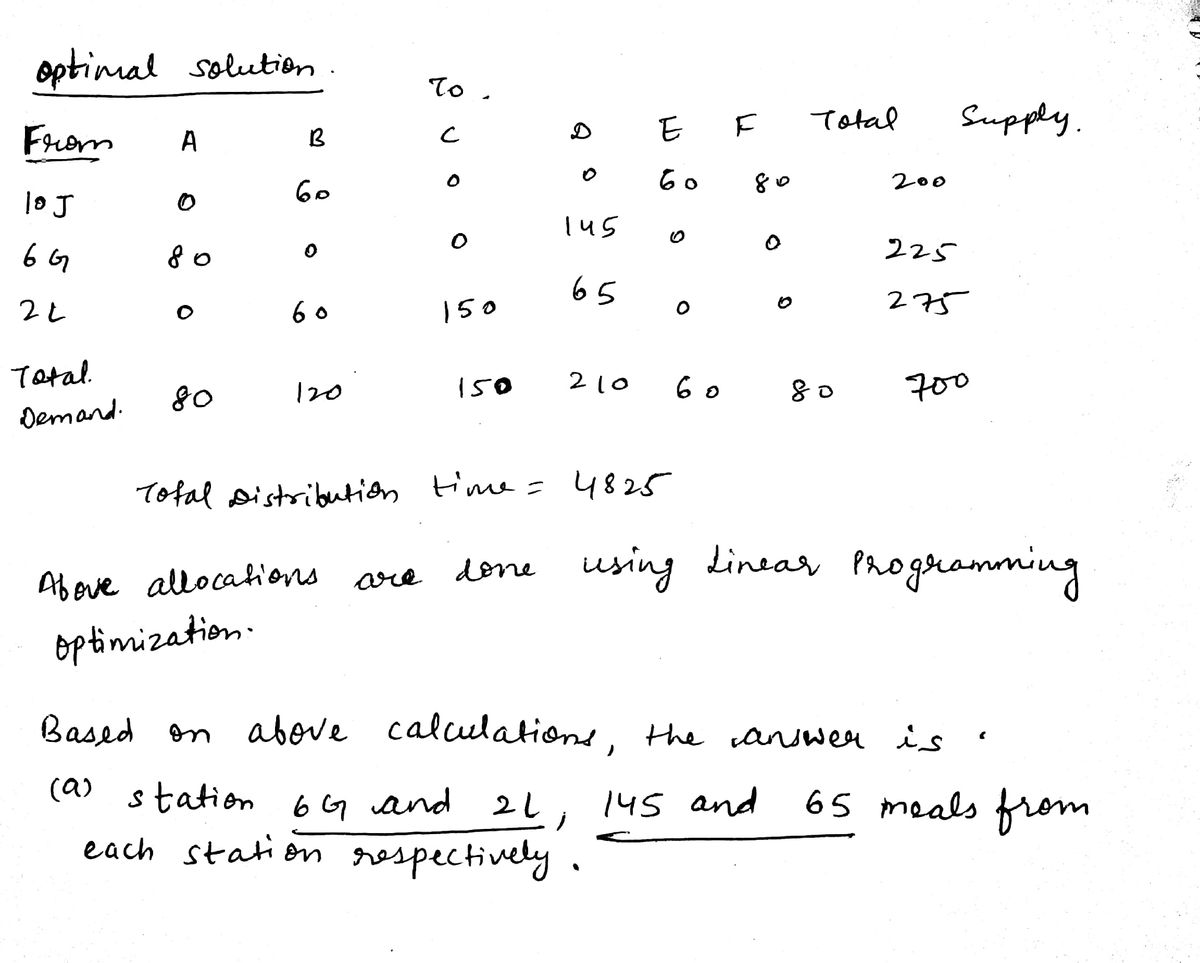 optimal solution.
To.
From A B C D E F Total Supply.
10J 0 60 0 0 60 80 200
6G 80 0 0 145 0 0 225
2L 0 60 150 65 0 0 275
Total.
Demand. 80 120 150 210 60 80 700
Total Distribution time = 4825
Above allocations are done using Linear Programming
optimization.
Based on above calculations, the answer is
(a) station 6G and 2L, 145 and 65 meals from
each station respectively.